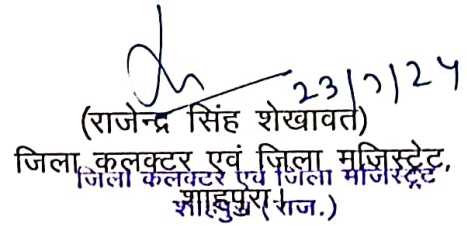 23/7/24
(राजेन्द्र सिंह शेखावत)
जिला कलक्टर एवं जिला मजिस्ट्रेट,
जिला कलक्टर एवं जिला मजिस्ट्रेट
शाहपुरा।
शाहपुरा (राज.)